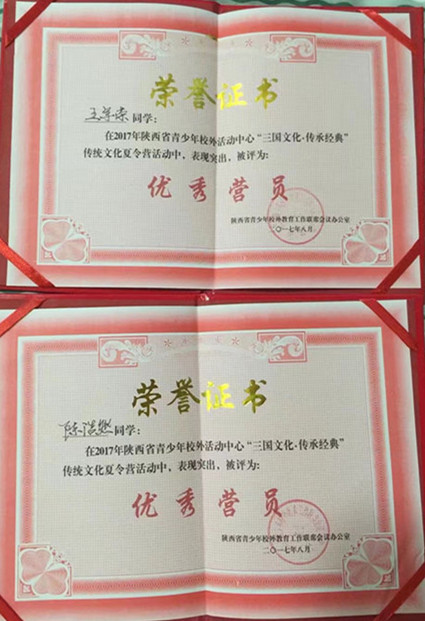 荣誉证书
同学：
在2017年陕西省青少年校外活动中心“三国文化·传承经典”
传统文化夏令营活动中，表现突出，被评为：
优秀营员
陕西省青少年校外教育工作联席会议办公室
二〇一七年八月
荣誉证书
同学：
在2017年陕西省青少年校外活动中心“三国文化·传承经典”
传统文化夏令营活动中，表现突出，被评为：
优秀营员
陕西省青少年校外教育工作联席会议办公室
二〇一七年八月